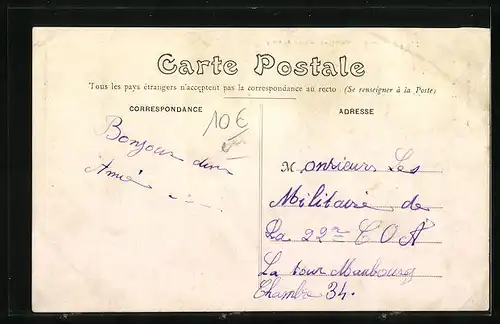 Carte Postale
Tous les pays étrangers n'acceptent pas la correspondance au recto (Se renseigner à la Poste)
CORRESPONDANCE
ADRESSE
10€
Bonjour d'un
Amie
Monsieurs Les
Militaire de
La 22me C O A
La tour Maubourg
Chambre 34.